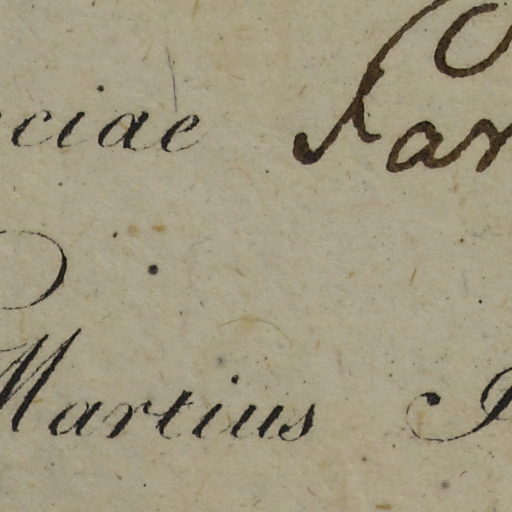 ciae Par
Martius